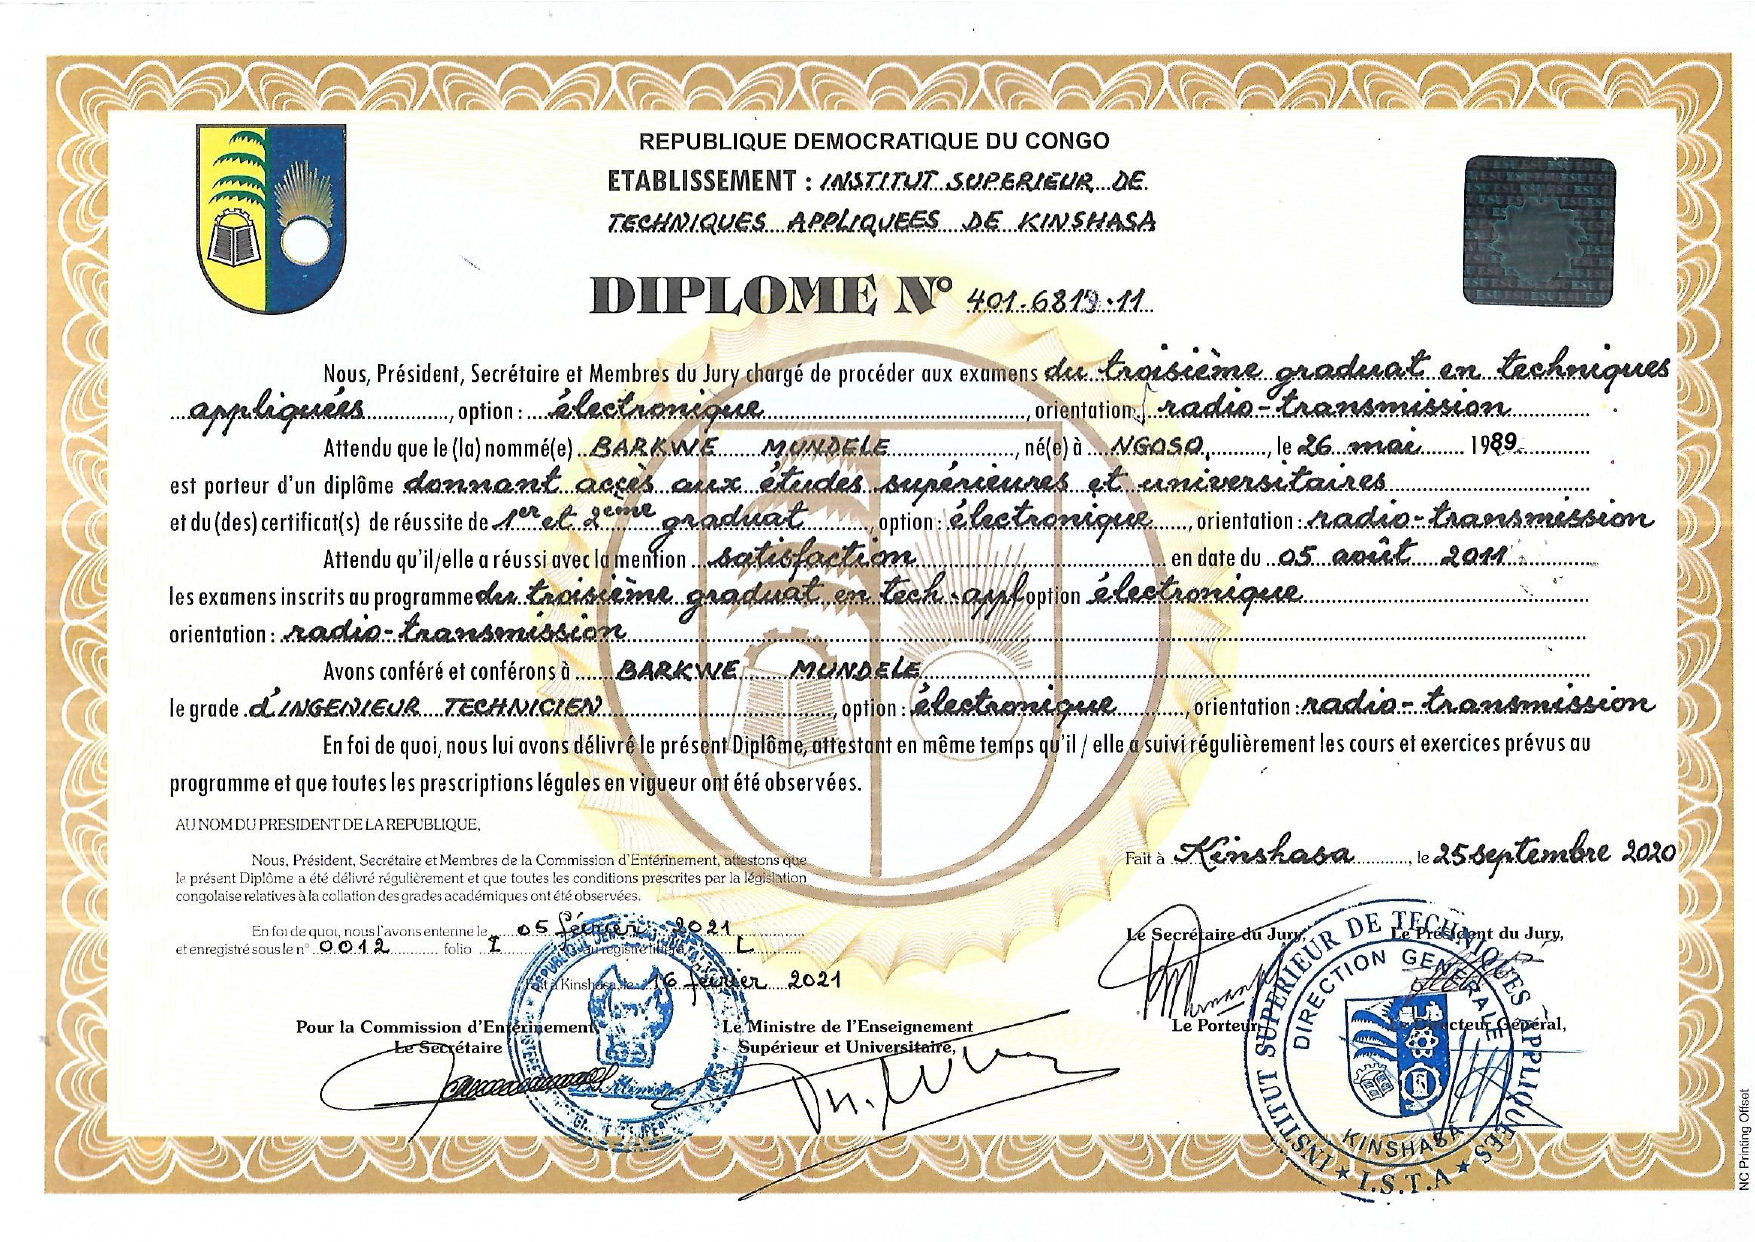 REPUBLIQUE DEMOCRATIQUE DU CONGO
ETABLISSEMENT : INSTITUT SUPERIEUR DE
TECHNIQUES APPLIQUEES DE KINSHASA
DIPLOME N° 401.6819.11
Nous, Président, Secrétaire et Membres du Jury chargé de procéder aux examens du troisième graduat en techniques
appliquées, option : électronique, orientation : radio-transmission
Attendu que le (la) nommé(e) BARKWE MUNDELE, né(e) à NGOSO, le 26 mai 1989
est porteur d'un diplôme donnant accès aux études supérieures et universitaires
et du (des) certificat(s) de réussite de 1er et 2ème graduat, option : électronique, orientation : radio-transmission
Attendu qu'il/elle a réussi avec la mention satisfaction en date du 05 août 2011
les examens inscrits au programme du troisième graduat en tech. appl option électronique
orientation : radio-transmission
Avons conféré et conférons à BARKWE MUNDELE
le grade d'INGENIEUR TECHNICIEN, option : électronique, orientation : radio-transmission
En foi de quoi, nous lui avons délivré le présent Diplôme, attestant en même temps qu'il / elle a suivi régulièrement les cours et exercices prévus au
programme et que toutes les prescriptions légales en vigueur ont été observées.
AU NOM DU PRESIDENT DE LA REPUBLIQUE,
Nous, Président, Secrétaire et Membres de la Commission d'Entérinement, attestons que
le présent Diplôme a été délivré régulièrement et que toutes les conditions prescrites par la législation
congolaise relatives à la collation des grades académiques ont été observées.
Fait à Kinshasa, le 25 septembre 2020
En foi de quoi, nous l'avons entériné le 05 février 2021
et enregistré sous le n° 0012 folio I au registre littera L
Fait à Kinshasa, le 16 février 2021
Le Secrétaire du Jury, Le Président du Jury,
Le Porteur, Le Directeur Général,
Pour la Commission d'Entérinement
Le Secrétaire
Le Ministre de l'Enseignement
Supérieur et Universitaire,
INSTITUT SUPERIEUR DE TECHNIQUES APPLIQUEES
DIRECTION GENERALE
KINSHASA
★ I.S.T.A ★
NC Printing Offset